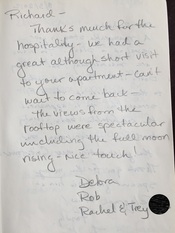 Richard -
Thanks much for the
hospitality - we had a
great although short visit
to your apartment - can't
wait to come back -
- the views from the
rooftop were spectacular
including the full moon
rising - nice touch!
Debra
Rob
Rachel &